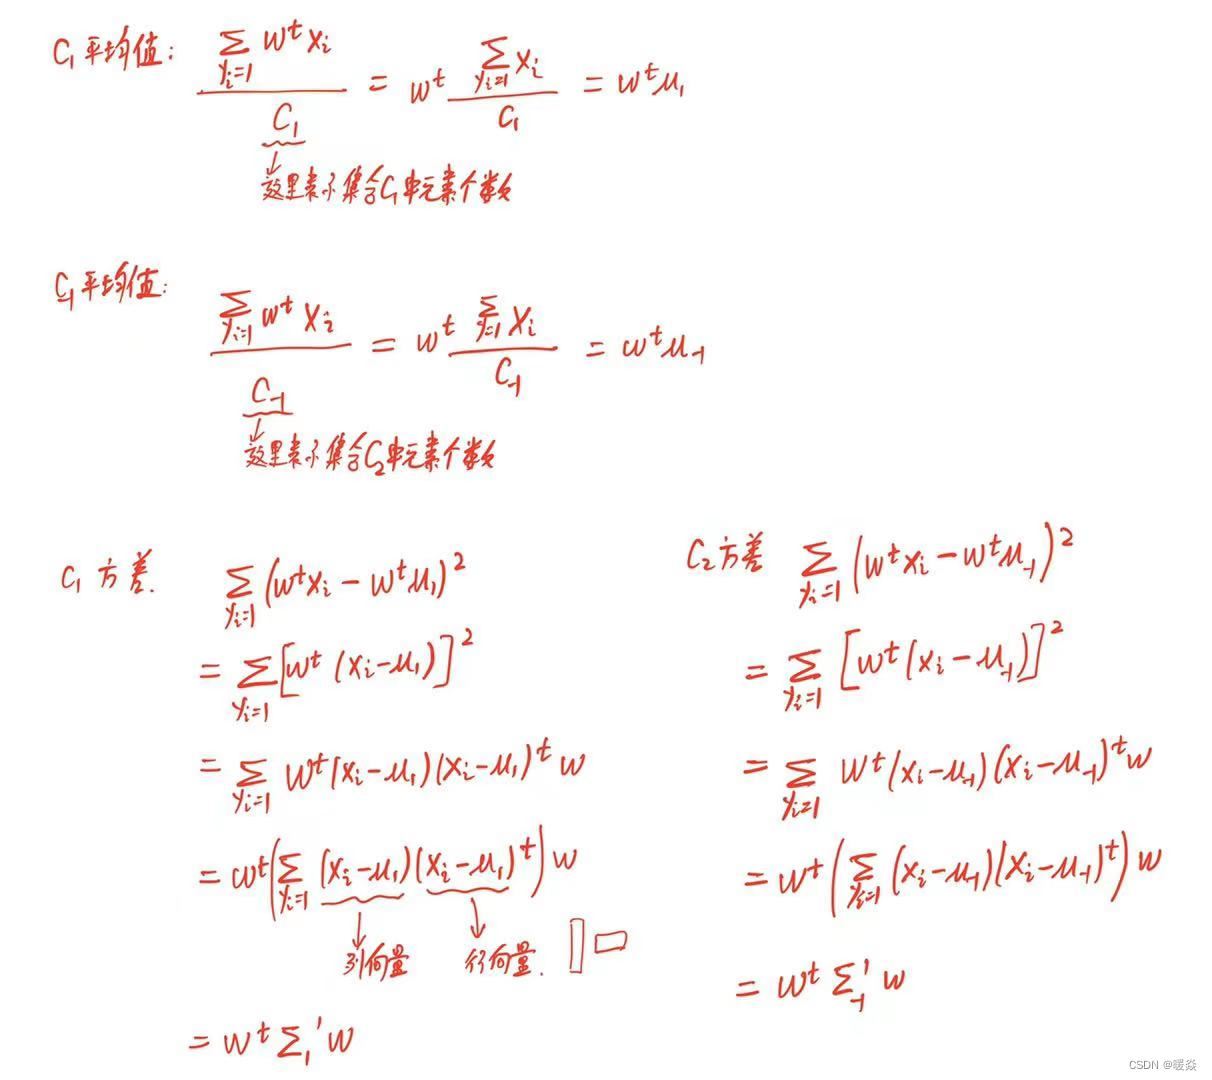 C₁平均值: \frac{\sum_{y_i=1} w^t x_i}{C_1} = w^t \frac{\sum_{y_i=1} x_i}{C_1} = w^t μ_1
这里表示集合C₁中元素个数
C₋₁平均值: \frac{\sum_{y_i=1} w^t x_i}{C_{-1}} = w^t \frac{\sum_{y=1} x_i}{C_{-1}} = w^t μ_{-1}
这里表示集合C₂中元素个数
C₁方差. \sum_{y_i=1} (w^t x_i - w^t μ_1)^2
= \sum_{y_i=1} [w^t (x_i - μ_1)]^2
= \sum_{y_i=1} w^t (x_i - μ_1)(x_i - μ_1)^t w
= w^t (\sum_{y_i=1} (x_i - μ_1)(x_i - μ_1)^t) w
列向量 行向量.
= w^t Σ_1' w
C₂方差 \sum_{y_i=1} (w^t x_i - w^t μ_{-1})^2
= \sum_{y_i=1} [w^t (x_i - μ_{-1})]^2
= \sum_{y_i=1} w^t (x_i - μ_{-1})(x_i - μ_{-1})^t w
= w^t (\sum_{y_i=1} (x_i - μ_{-1})(x_i - μ_{-1})^t) w
= w^t Σ_{-1}' w
CSDN @暖焱